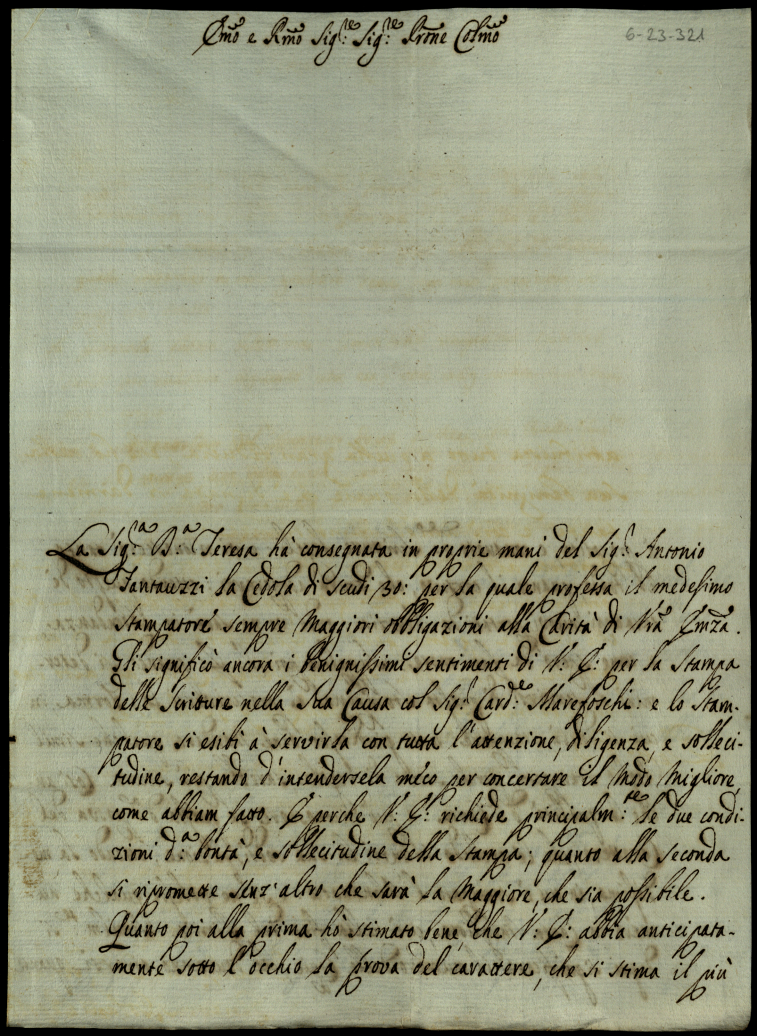 Emo e Rmo Sig.re Sig.re Prone Colmo
6-23-321
La Sig.a D.a Teresa hà consegnata in proprie mani del Sig.r Antonio
Fantauzzi la Cedola di scudi 30: per la quale professa il medesimo
Stampatore sempre Maggiori obbligazioni alla Carità di Vra Emza.
Gli significò ancora i benignissimi sentimenti di V: E: per la Stampa
delle Scritture nella Sua Causa col Sig.r Card.e Marefoschi: e lo Stam-
patore si esibì à servirla con tutta l'attenzione, diligenza, e solleci-
tudine, restando d'intendersela meco per concertare il Modo Migliore,
come abbiam fatto. E perche V: E: richiede principalm.te le due condi-
zioni d.a bontà, e sollecitudine della Stampa; quanto alla seconda
si ripromette senz'altro che sarà la Maggiore, che sia possibile.
Quanto poi alla prima hò stimato bene, che V: E: abbia anticipata-
mente sotto l'occhio la prova del carattere, che si stima il più